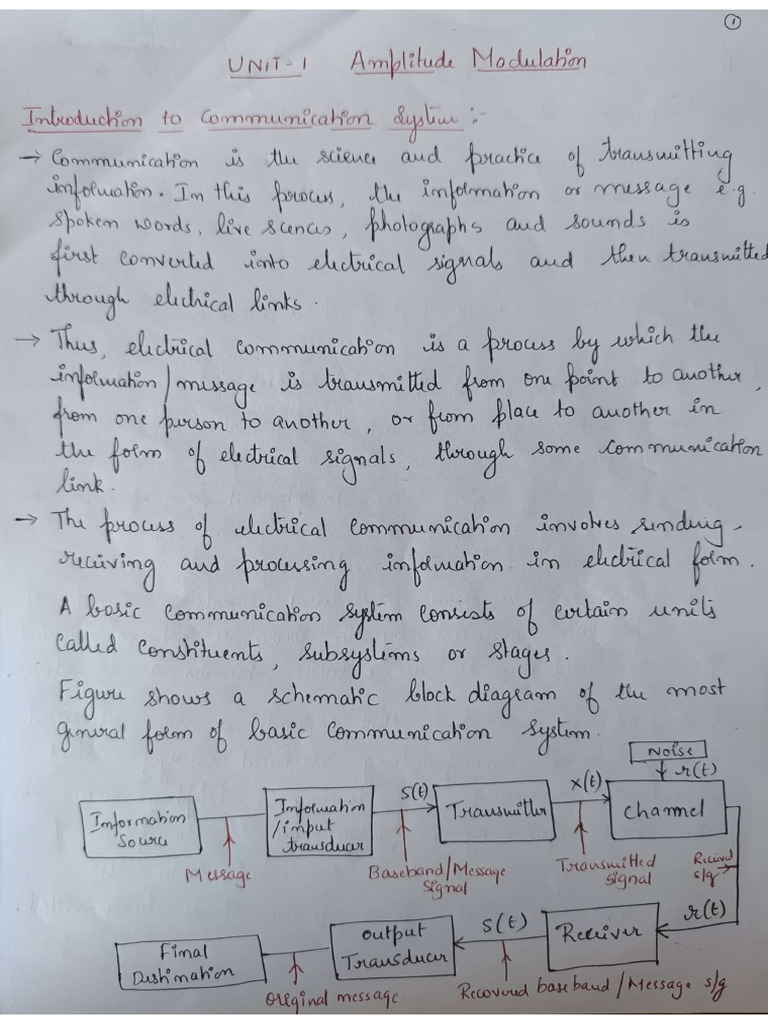 1
UNIT-1 Amplitude Modulation
Introduction to Communication System:-
→ Communication is the science and practice of transmitting
information. In this process, the information or message e.g.
spoken words, live scences, photographs and sounds is
first converted into electrical signals and then transmitted
through electrical links.
→ Thus, electrical communication is a process by which the
information/message is transmitted from one point to another,
from one person to another, or from place to another in
the form of electrical signals, through some communication
link.
→ The process of electrical communication involves sending,
receiving and processing information in electrical form.
A basic communication system consists of certain units
called constituents, subsystems or stages.
Figure shows a schematic block diagram of the most
general form of basic communication system.
Noise
r(t)
Information
Source
Information
/input
transducer
S(t)
Transmitter
X(t)
Channel
Message
Baseband/Message
Signal
Transmitted
signal
Received
s/g
r(t)
Final
Destination
Output
Transducer
S(t)
Receiver
Original message
Recovered baseband/Message s/g